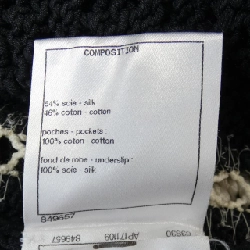 COMPOSITION
54% soie - silk
46% coton - cotton
poches - pockets
100% coton - cotton
fond de robe - underslip
100% soie - silk
849657
849657